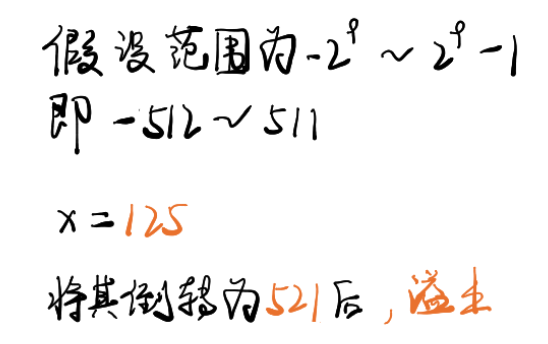 假设范围为-2⁹ ~ 2⁹-1
即 -512 ~ 511
x = 125
将其倒转为521后，溢出